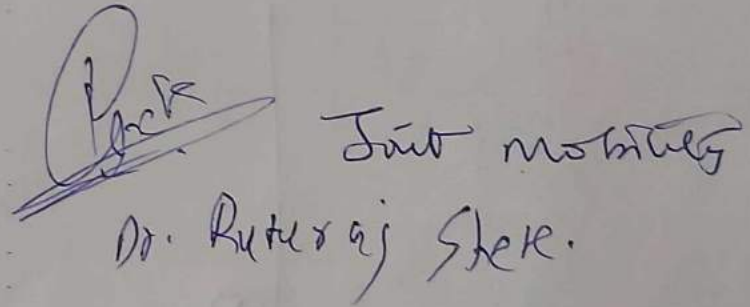 Joint mobility
Dr. Ruturaj Shete.